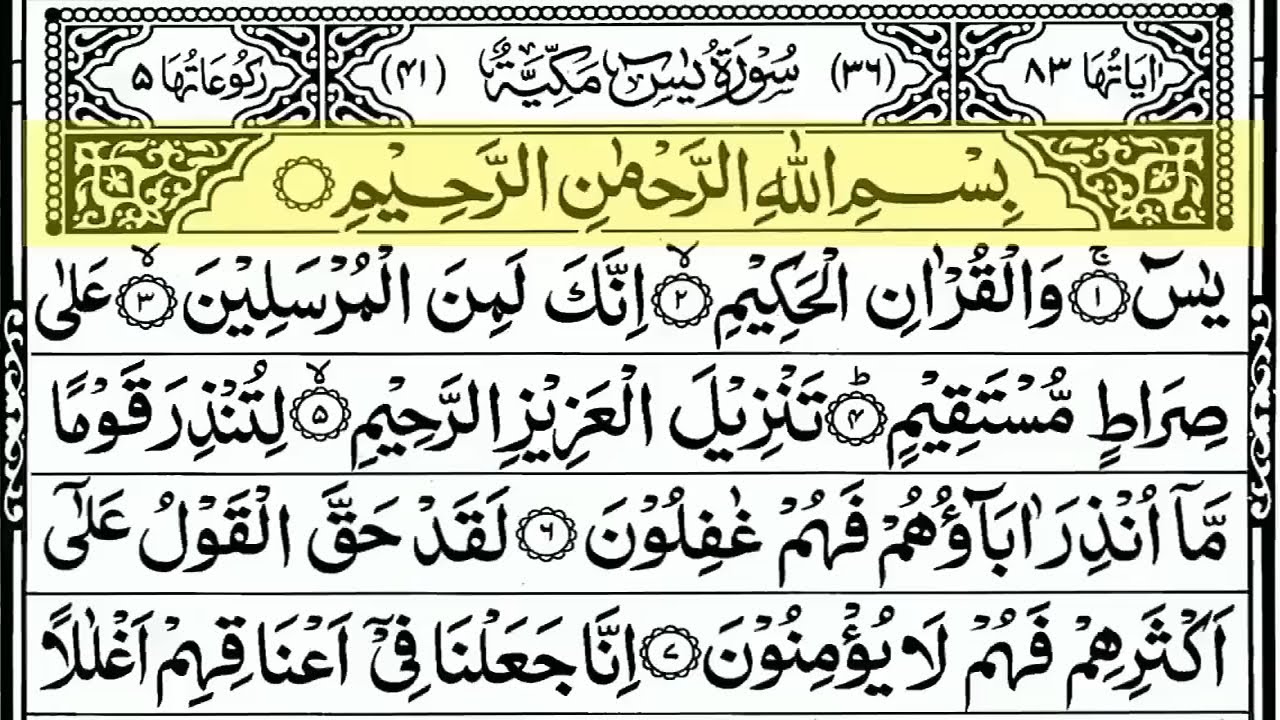 اٰيَاتُهَا ٨٣
(٣٦) سُوْرَةُ يٰسٓ مَكِّيَّةٌ (٤١)
رُكُوْعَاتُهَا ٥
بِسْمِ اللّٰهِ الرَّحْمٰنِ الرَّحِيْمِ
يٰسٓ ۚ ١ وَالْقُرْاٰنِ الْحَكِيْمِ ۙ ٢ اِنَّكَ لَمِنَ الْمُرْسَلِيْنَ ۙ ٣ عَلٰى
صِرَاطٍ مُّسْتَقِيْمٍ ؕ ۴ تَنْزِيْلَ الْعَزِيْزِ الرَّحِيْمِ ۙ ۵ لِتُنْذِرَ قَوْمًا
مَّاۤ اُنْذِرَ اٰبَآؤُهُمْ فَهُمْ غٰفِلُوْنَ ۶ لَقَدْ حَقَّ الْقَوْلُ عَلٰٓى
اَكْثَرِهِمْ فَهُمْ لَا يُؤْمِنُوْنَ ۷ اِنَّا جَعَلْنَا فِيْۤ اَعْنَاقِهِمْ اَغْلٰلًا